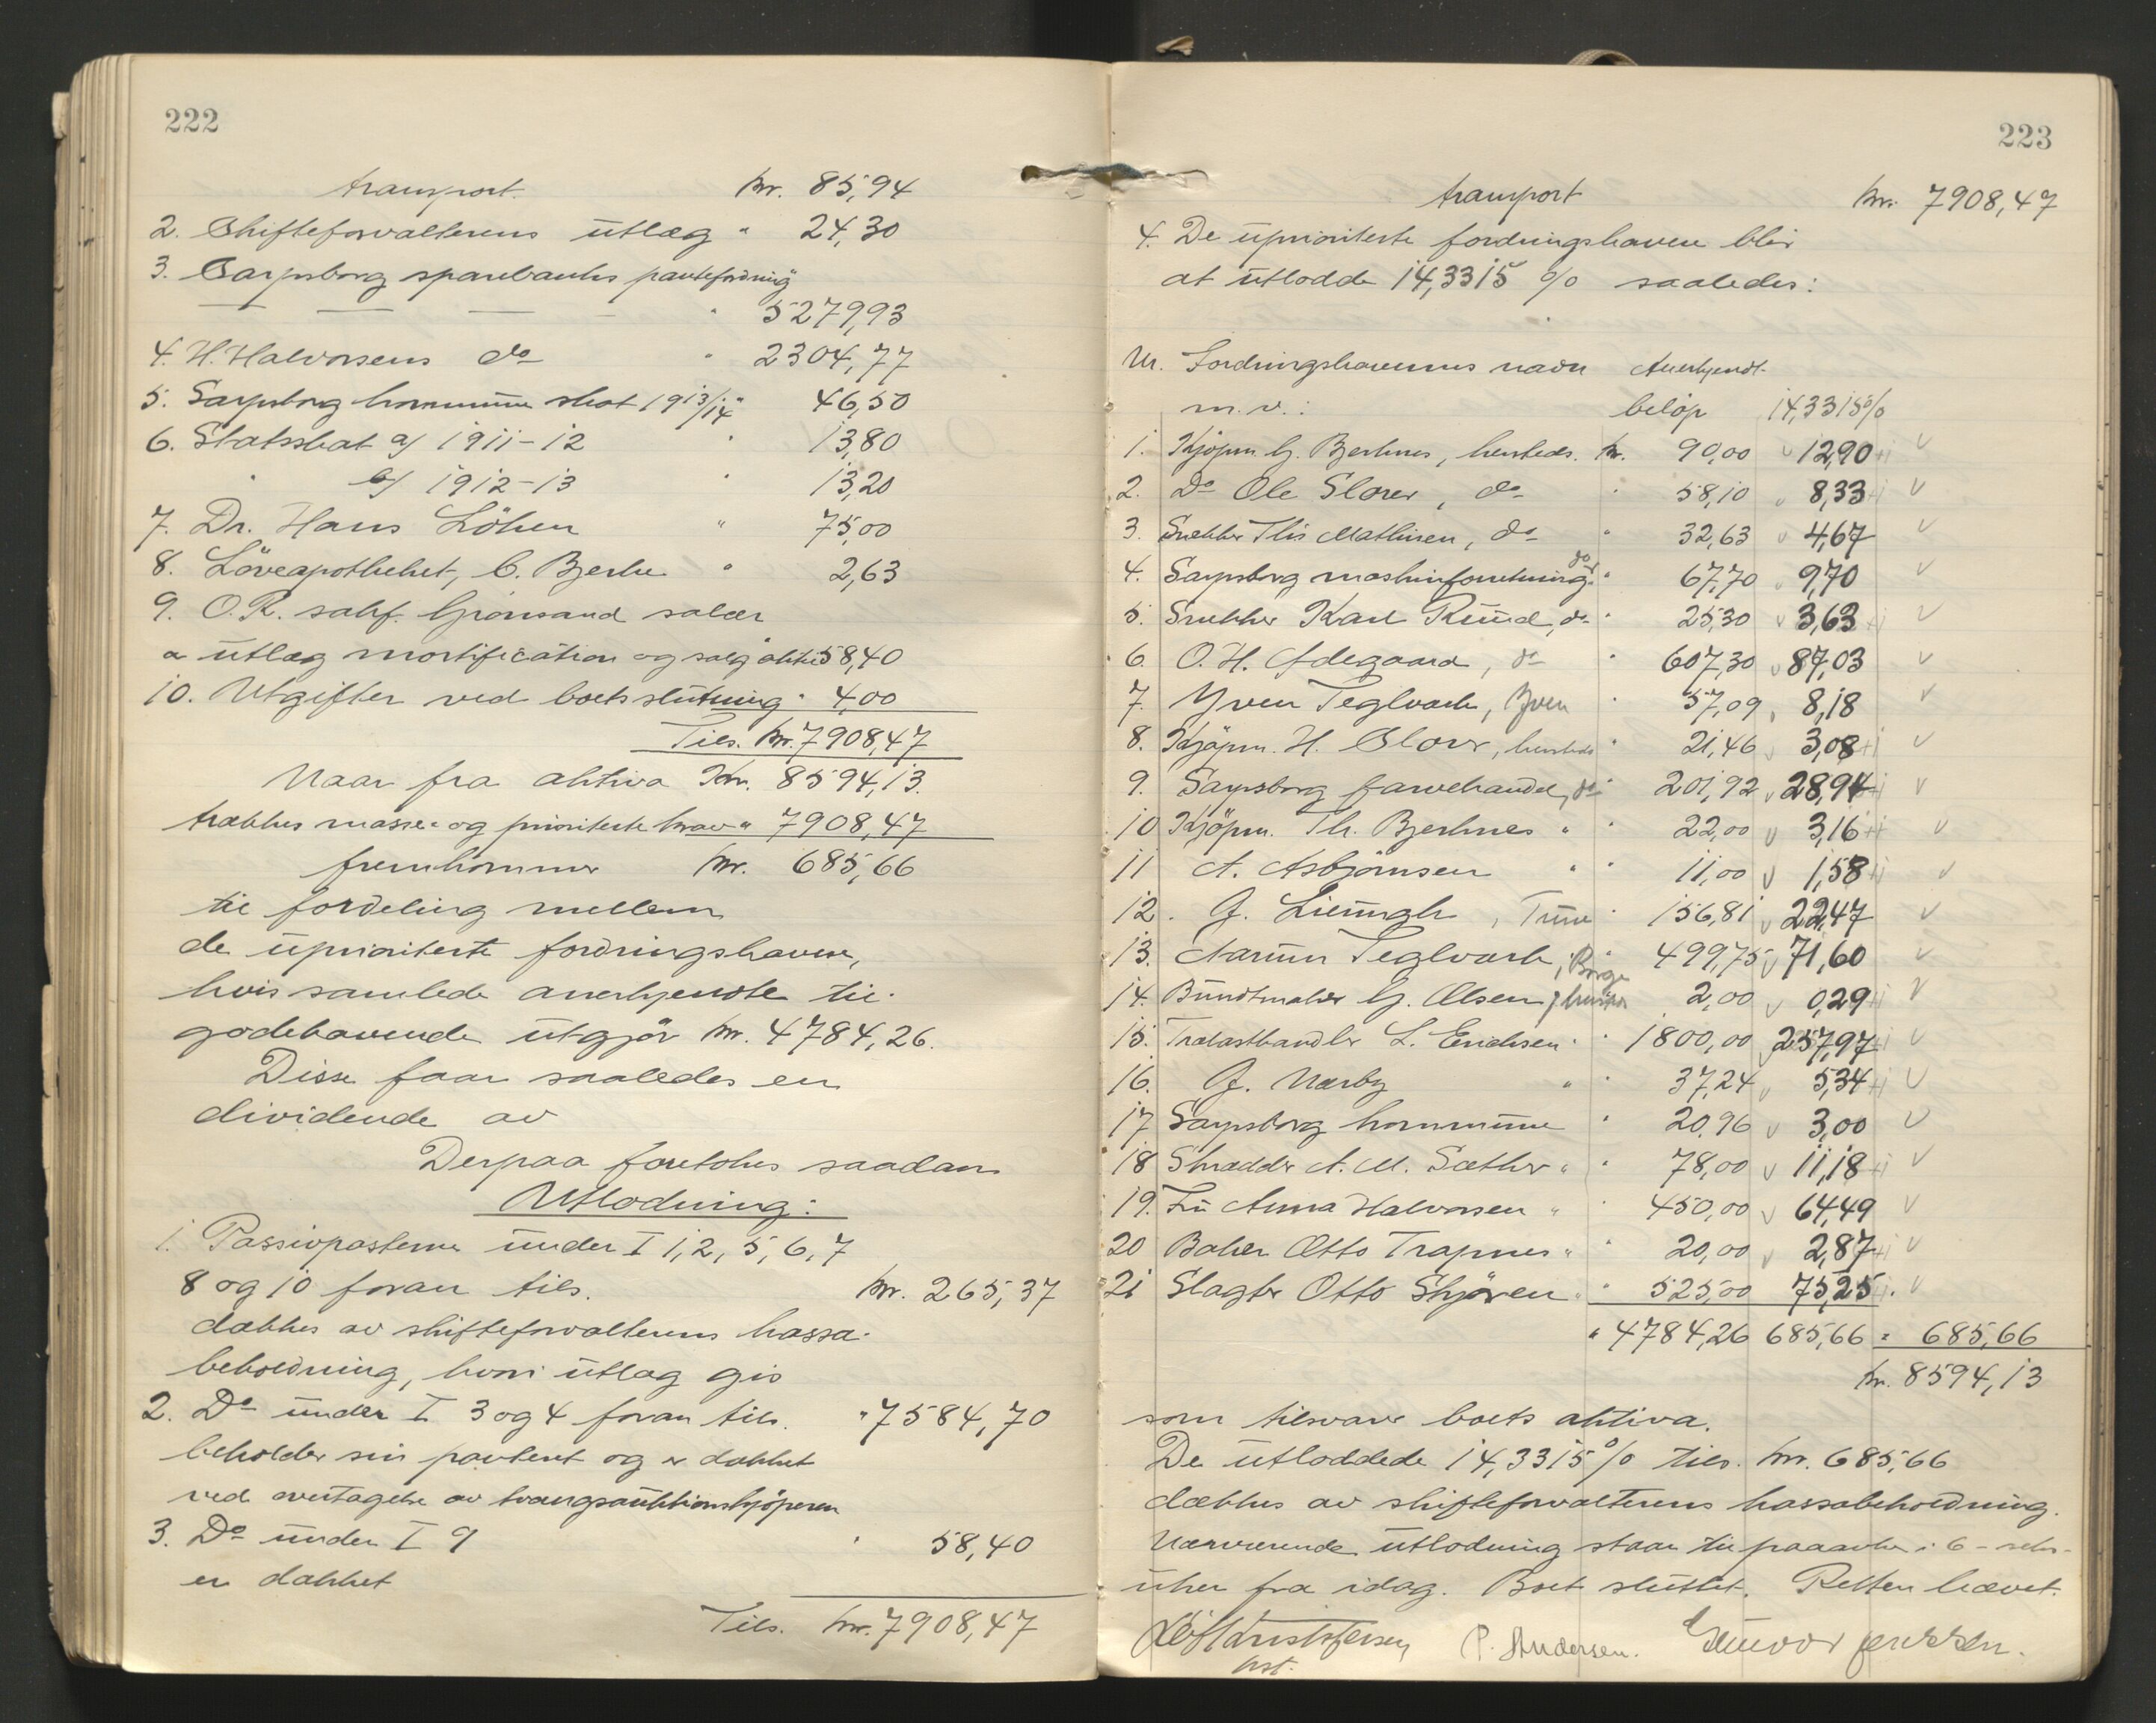 222
transport. kr. 85,94
2. Skifteforvalterens utlæg " 24,30
3. Sarpsborg sparebanks pantefordring
— — — — " 5279,93
4. H. Halvorsens do " 2304,77
5. Sarpsborg kommune skat 1913/14 " 46,50
6. Statsskat a/ 1911-12 " 13,80
" b/ 1912-13 " 13,20
7. Dr. Hans Löken " 75,00
8. Löveapotheket, C. Bjerke " 2,63
9. O.R. sakf. Grönsand salær
a utlæg mortification og salg aktie 58,40
10. Utgifter ved boets slutning " 4,00
Tils. kr. 7908,47
Naar fra aktiva Kr. 8594,13.
trækkes masse- og prioriterte krav " 7908,47
fremkommer kr. 685,66
til fordeling mellem
de uprioriterte fordringshavere,
hvis samlede anerkjendte til-
godehavende utgjør kr. 4784,26.
Disse faar saaledes en
dividende av
Derpaa foretokes saadan
Utlodning:
1. Passivposterne under I 1, 2, 5, 6, 7
8 og 10 foran tils. kr. 265,37
dækkes av skifteforvalterens kassa-
beholdning, hvori utlæg gis
2. Do under I 3 og 4 foran tils. " 7584,70
beholder sin panteret og er dækket
ved overtagelse av tvangsauktionskjøperen
3. Do under I 9 " 58,40
er dækket
Tils. kr. 7908,47
223
transport kr. 7908,47
4. De uprioriterte fordringshavere blir
at utlodde 14,3315 % saaledes:
Nr. Fordringshavernes navn Anerkjendt
m.v.: beløp 14,3315%
1. Kjøpm. G. Bjerknes, hersteds. kr. 90,00 12,90
2. Do Ole Slorer, do " 58,10 8,33
3. Snekker Ths Mathisen, do " 32,63 4,67
4. Sarpsborg maskinforretning do " 67,70 9,70
5. Snekker Karl Ruud, do " 25,30 3,63
6. O. H. Ødegaard, do " 607,30 87,03
7. Yven Teglverk, Yven " 57,09 8,18
8. Kjøpm. H. Slorer, hersteds " 21,46 3,08
9. Sarpsborg farvehandel, do " 201,92 28,94
10 Kjøpm. Th. Bjerknes " " 22,00 3,16
11 A. Asbjørnsen " " 11,00 1,58
12. J. Liengh, Tune " 156,81 22,47
13. Narum Teglverk, Borge " 499,75 71,60
14. Buntmaker G. Olsen, hersteds 2,00 0,29
15. Trælasthandler L. Erichsen " " 1800,00 257,97
16. J. Nærby " " 37,24 5,34
17 Sarpsborg kommune " 20,96 3,00
18 Skrædder A. M. Sæther " " 78,00 11,18
19. Fru Anna Halvorsen " " 450,00 64,49
20 Baker Otto Trapnes " " 20,00 2,87
21 Slagter Otto Skjøren " " 525,00 75,25
" 4784,26 685,66 " 685,66
kr. 8594,13
som tilsvarer boets aktiva.
De utloddede 14,3315% tils. kr. 685,66
dækkes av skifteforvalterens kassabeholdning.
Nærværende utlodning staar til paaanke i 6 - seks-
uker fra idag. Boet sluttet. Retten hævet.
Kristofersen P. Andersen.
kst.